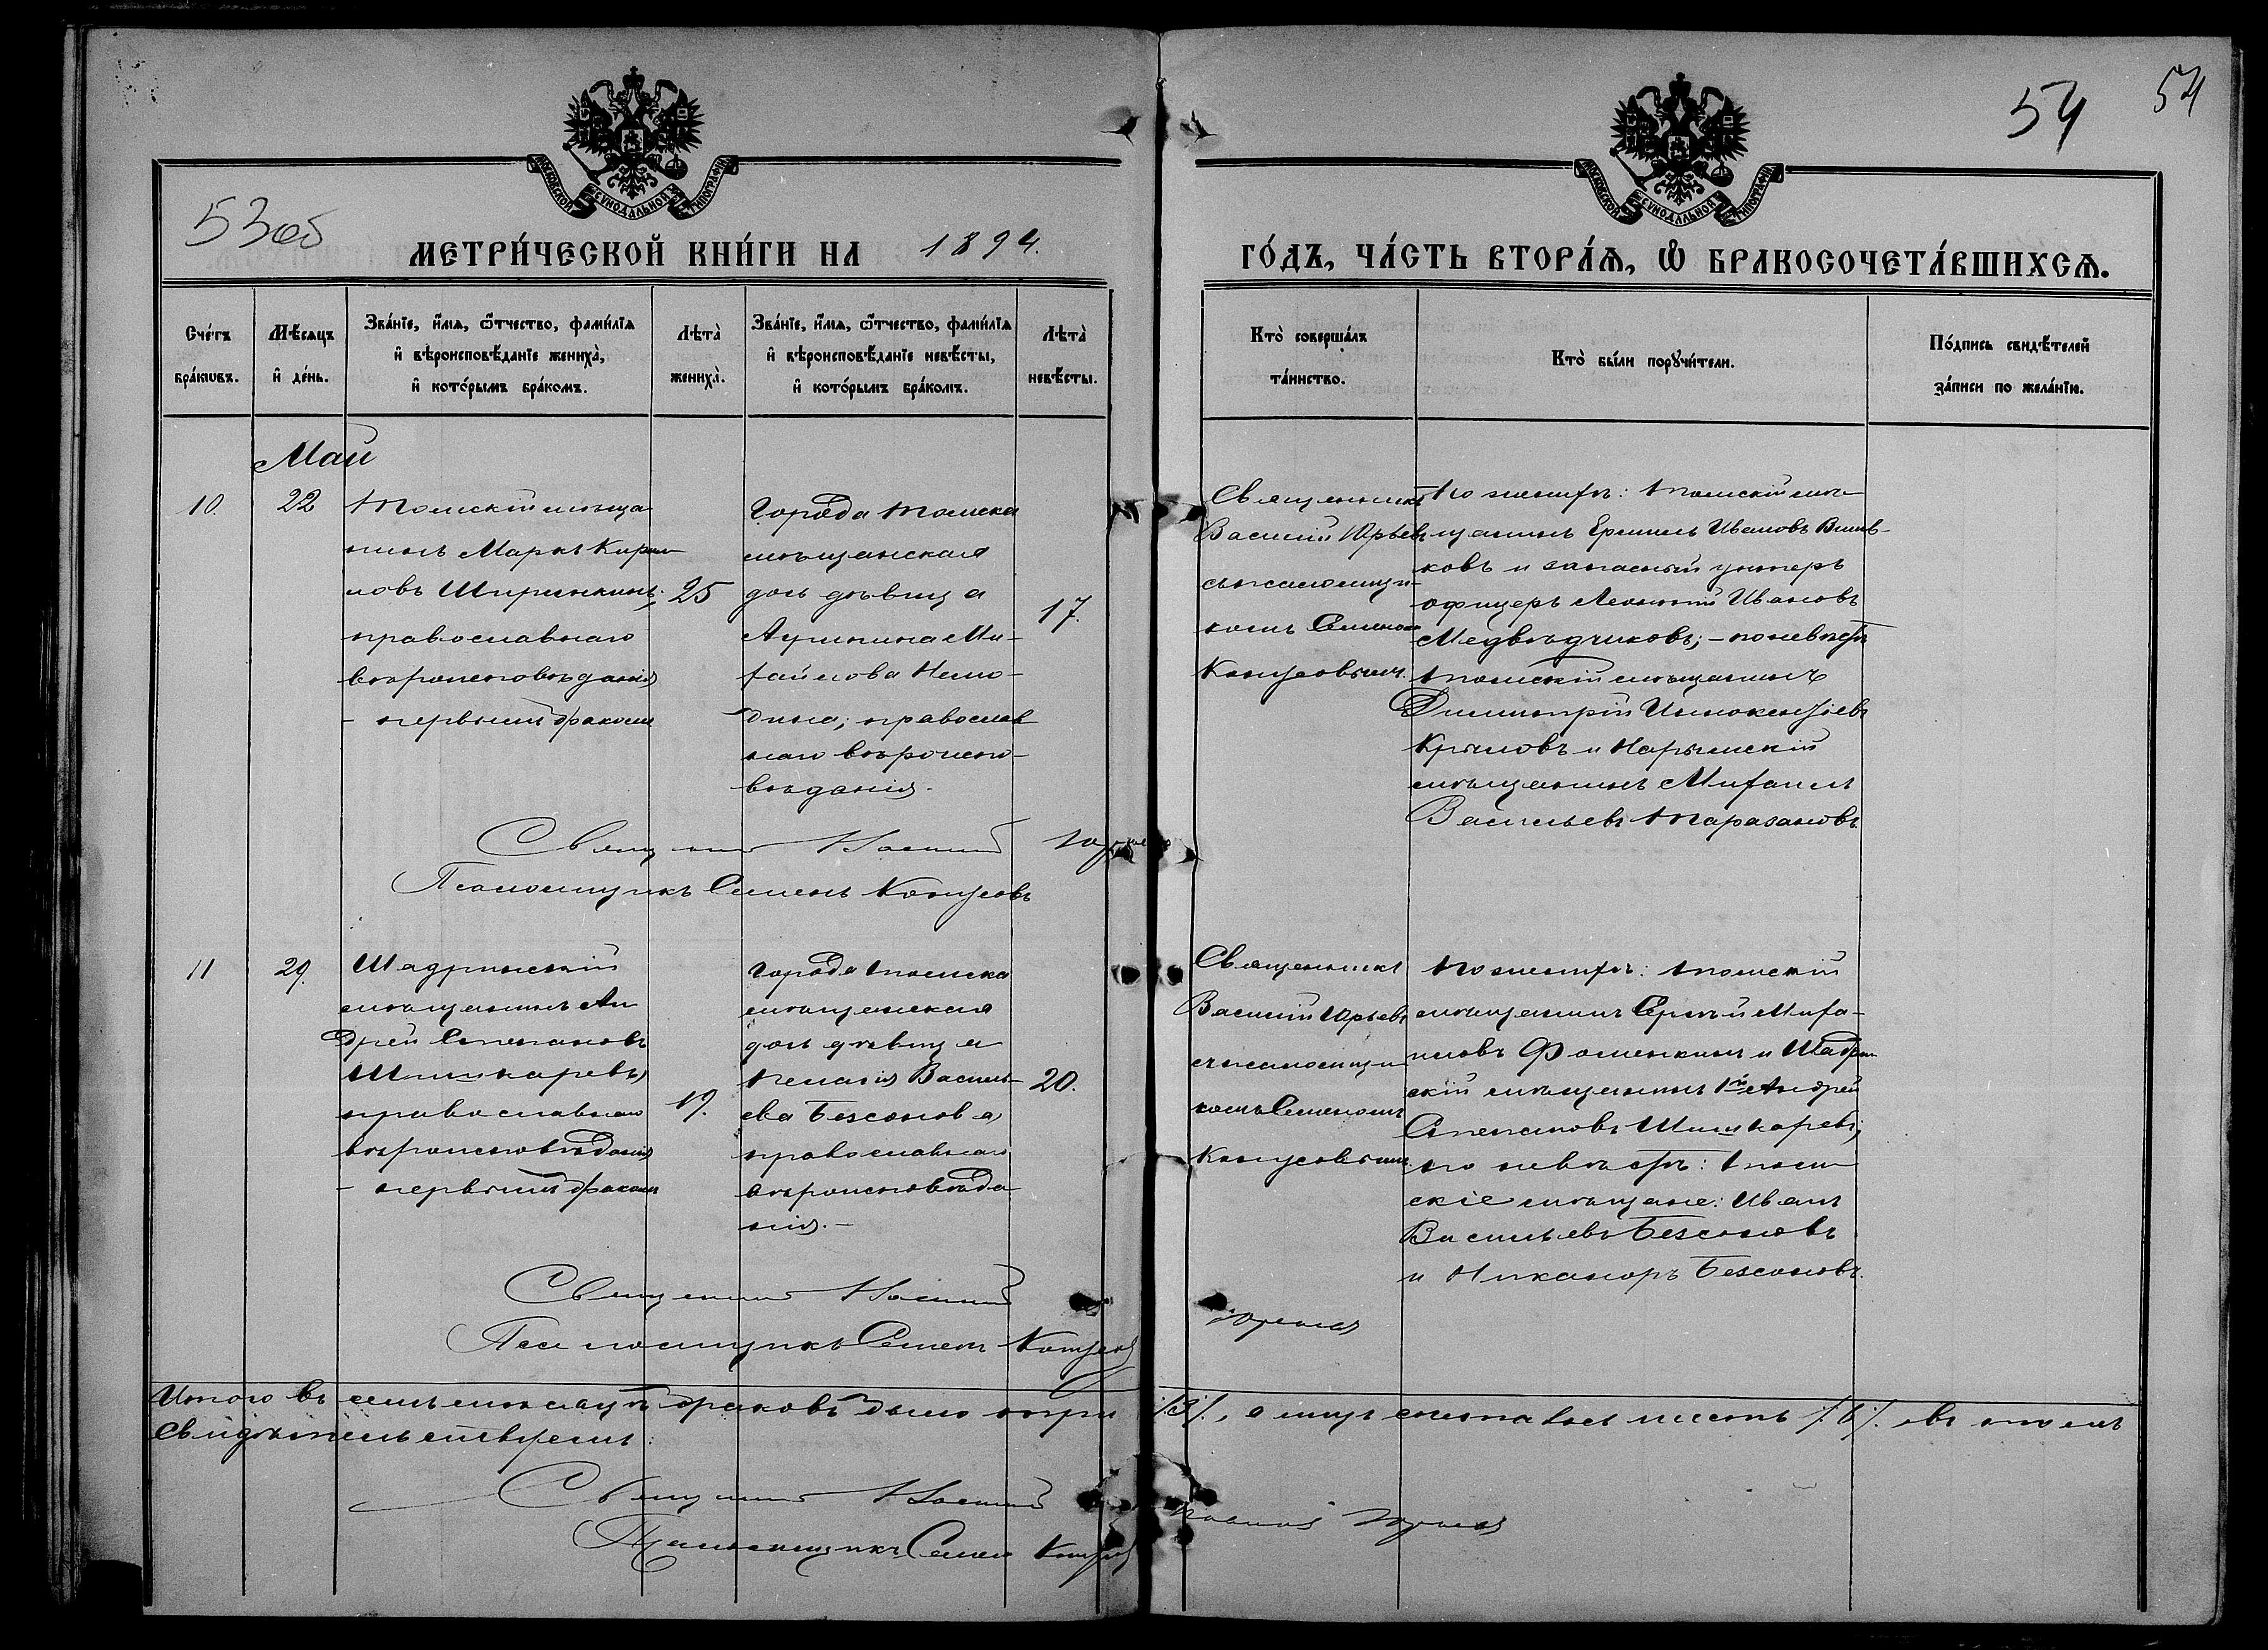 54 54
53об
МОСКОВСКОЙ СѴНОДАЛЬНОЙ ТИПОГРАФІИ
МОСКОВСКОЙ СѴНОДАЛЬНОЙ ТИПОГРАФІИ
МЕТРИ́ЧЕСКОЙ КНИ́ГИ НА 1894.
ГО́ДЪ, ЧА́СТЬ ВТОРА́Ѧ, Ѡ҆ БРАКОСОЧЕТА́ВШИХСѦ.
Сче́тъ
бра́кѡвъ.
Мѣ́сѧцъ
и҆ де́нь.
Зва́нїе, и҆́мѧ, ѻ҆́тчество, фами́лїѧ
и҆ вѣроисповѣ́данїе жениха̀,
и҆ кото́рымъ бра́комъ.
Лѣта̀
жениха̀.
Зва́нїе, и҆́мѧ, ѻ҆́тчество, фами́лїѧ
и҆ вѣроисповѣ́данїе невѣ́сты,
и҆ кото́рымъ бра́комъ.
Лѣта̀
невѣ́сты.
Кто̀ соверша́лъ
та́инство.
Кто̀ бы́ли порꙋчи́тели.
По́дпись свидѣ́телей
за́писи по жела́нїю.
Май
10.
22
Томскій мѣща
нинъ Маркъ Кирил
ловъ Ширинкинъ;
православнаго
вѣроисповѣданія
- первымъ бракомъ
25
Города Томска
мѣщанская
дочь дѣвица
Агрипина Ми-
хайлова
дина; православ
наго вѣроиспо-
вѣданія.
17.
Священникъ
Василій Юрьевъ
съ псаломщи-
комъ Семеномъ
По женихѣ: Томскій мѣ-
щанинъ Ермилъ Ивановъ
ковъ и запасный унтеръ
офицеръ Леонтій Ивановъ
Медвѣдчиковъ; - по невѣстѣ
Томскій мѣщанинъ
Димитрій Иннокентіевъ
Крыловъ и Нарымскій
мѣщанинъ Михаилъ
Васильевъ Таразановъ.
Священникъ Василій Юрьевъ
Псаломщикъ Семенъ
11
29.
Шадринскій
мѣщанинъ Ан
дрей Степановъ
Шишкаревъ,
православнаго
вѣроисповѣданія
- первымъ бракомъ
19.
Города Томска
мѣщанская
дочь дѣвица
Пелагія Василь-
ева Безсонова,
православнаго
вѣроисповѣда
нія.-
20.
Священникъ
Василій Юрьевъ
съ псаломщи
комъ Семеномъ
По женихѣ: Томскій
мѣщанинъ Сергѣй Миха-
иловъ Фоминкинъ и Шадрин
скій мѣщанинъ 1й Андрей
Степановъ Шишкаревъ;
по невѣстѣ: Том
скіе мѣщане: Иванъ
Васильевъ Безсоновъ
и Никаноръ Безсоновъ.
Священникъ Василій Юрьевъ
Псаломщикъ Семенъ
Итого въ семъ мѣсяцѣ браковъ было три /:3:/, а лицъ сочеталось шесть /:6:/. въ томъ
свидѣтельствуемъ:
Священникъ Василій Юрьевъ
Псаломщикъ Семенъ